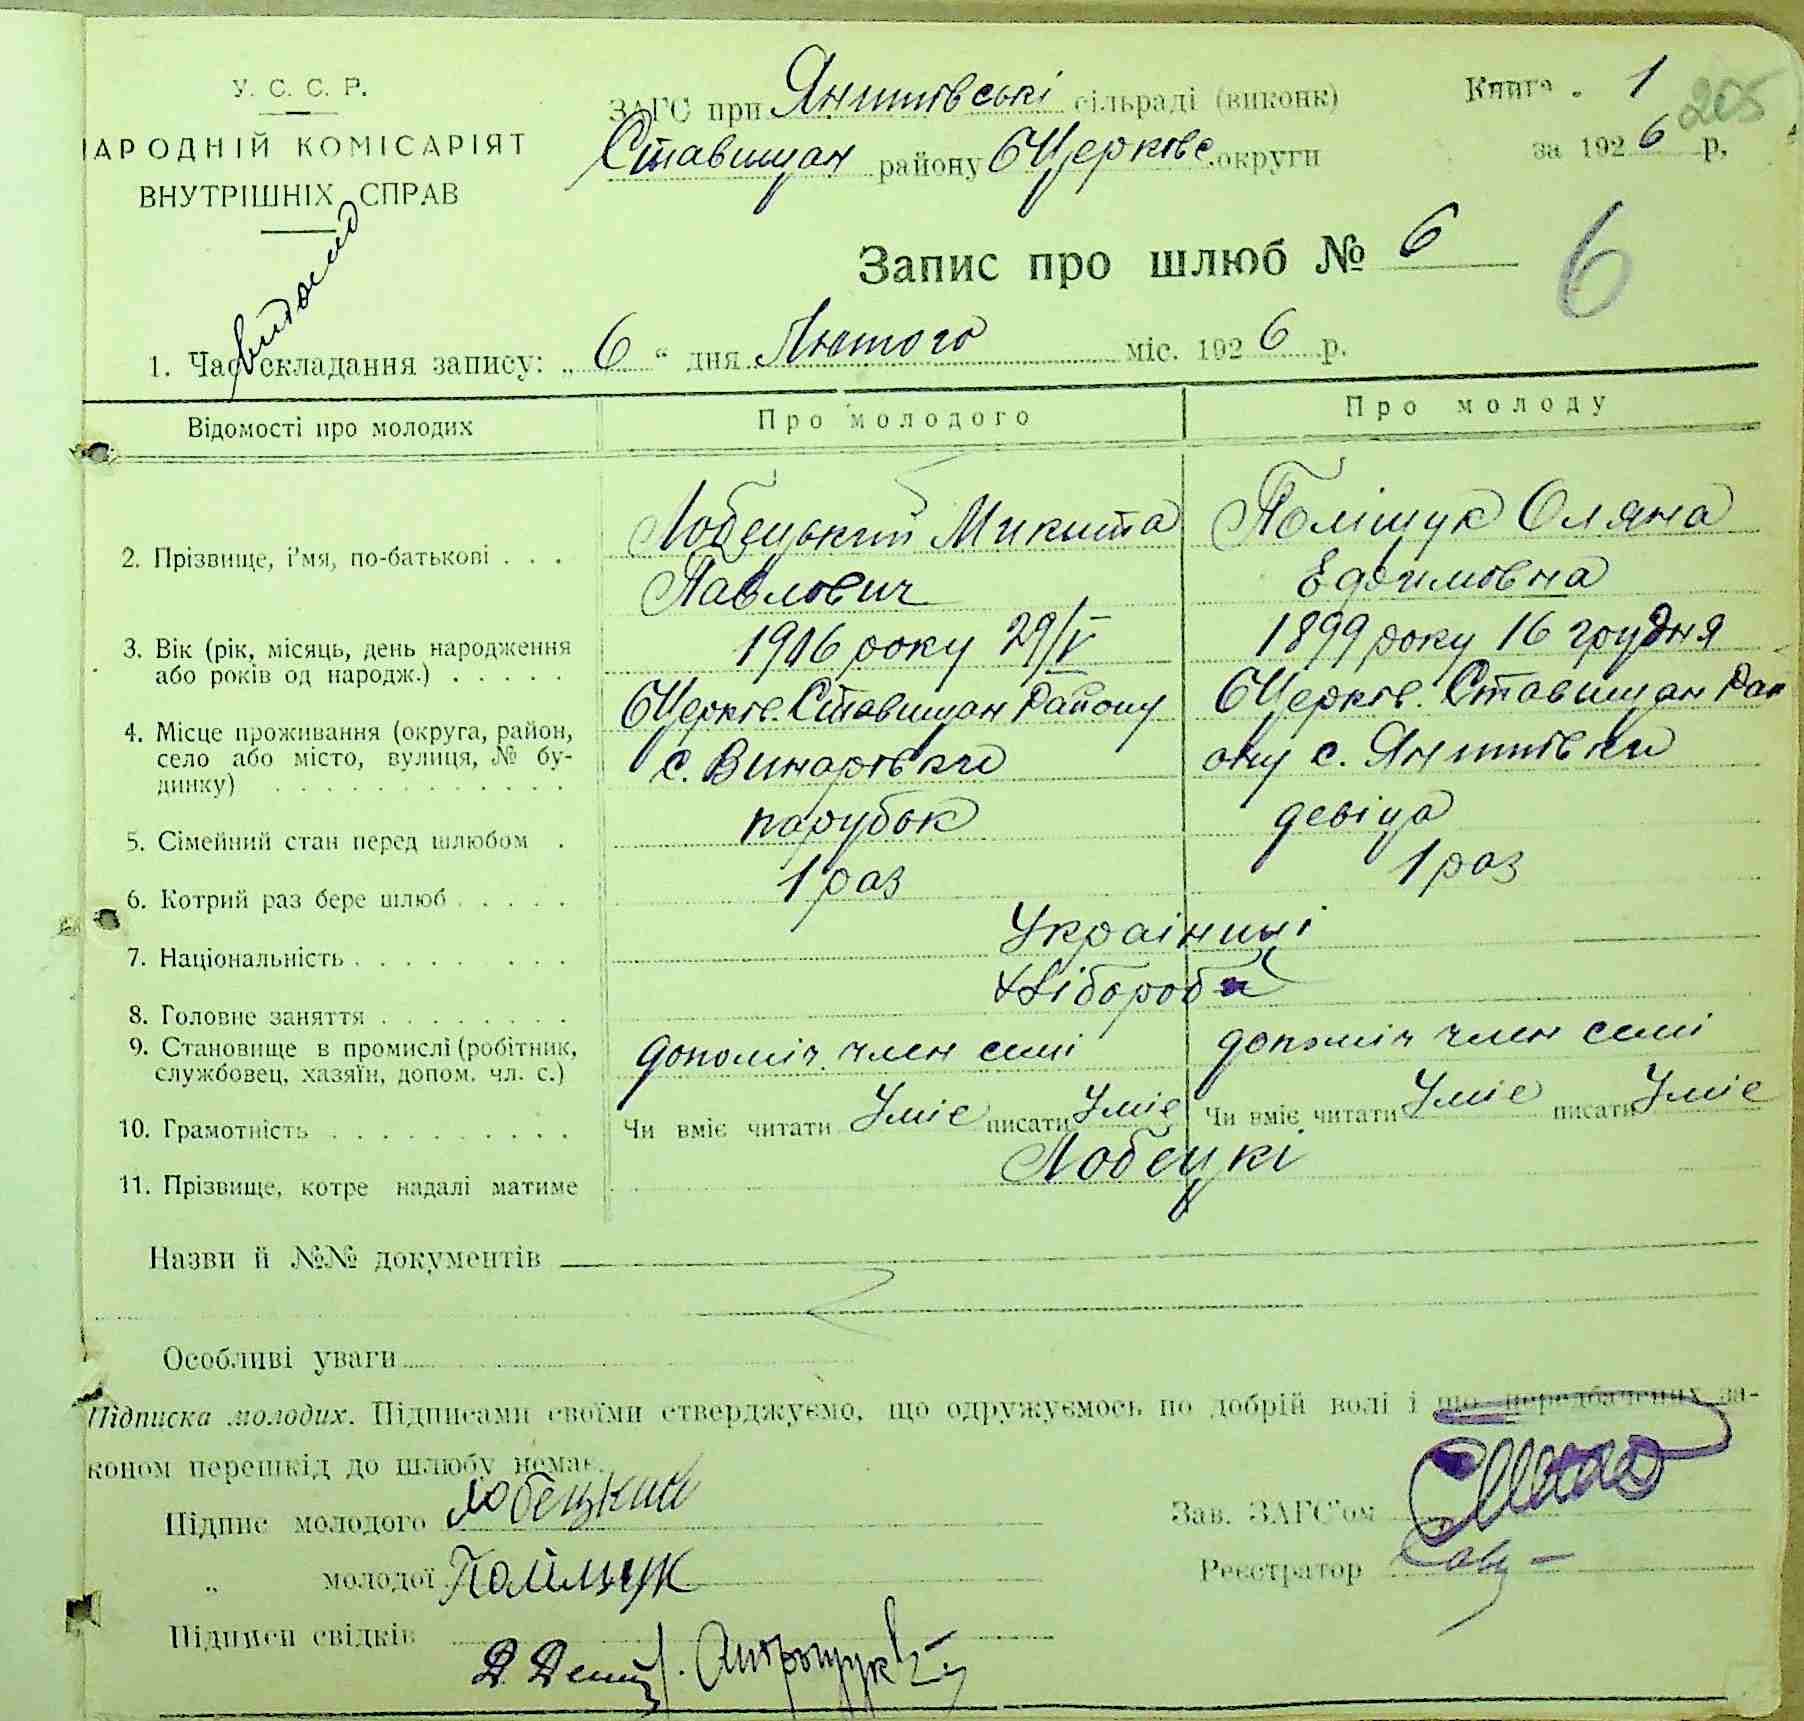 У. С. С. Р.
НАРОДНІЙ КОМІСАРІЯТ
ВНУТРІШНІХ СПРАВ
ЗАГС при Янишівські сільраді (виконк)
Ставищан району БЦерківс. округи
Книга 1
205
за 1926 р.
Запис про шлюб № 6
6
1. Час складання запису: „ 6 “ дня Лютого міс. 1926 р.
Відомості про молодих Про молодого Про молоду
2. Прізвище, і'мя, по-батькові . . . Лобецький Микита Поліщук Оляна
Павлович Ефимовна
3. Вік (рік, місяць, день народження 1906 року 29/V 1899 року 16 грудня
або років од народж.) . . . . .
4. Місце проживання (округа, район, БЦерків. Ставищан Району БЦерків. Ставищан Рай
село або місто, вулиця, № бу- с. Винарівки ону с. Янишівки
динку) . . . . . . . . . . . .
5. Сімейний стан перед шлюбом . парубок девіца
6. Котрий раз бере шлюб . . . . . 1 раз 1 раз
7. Національність . . . . . . . . . Українці
8. Головне заняття . . . . . . . . Хлібороби
9. Становище в промислі (робітник, допоміч. член семі допоміч член семі
службовец, хазяїн, допом. чл. с.)
10. Грамотність . . . . . . . . . . Чи вміє читати Уміє писати Уміє Чи вміє читати Уміє писати Уміє
11. Прізвище, котре надалі матиме Лобецкі
Назви й №№ документів
Особливі уваги
Підписка молодих. Підписами своїми стверджуємо, що одружуємось по добрій волі і що передбачених за-
коном перешкід до шлюбу немає.
Підпис молодого Лобецкий
Зав. ЗАГС'ом
„ молодої Поліщук
Реєстратор
Підписи свідків